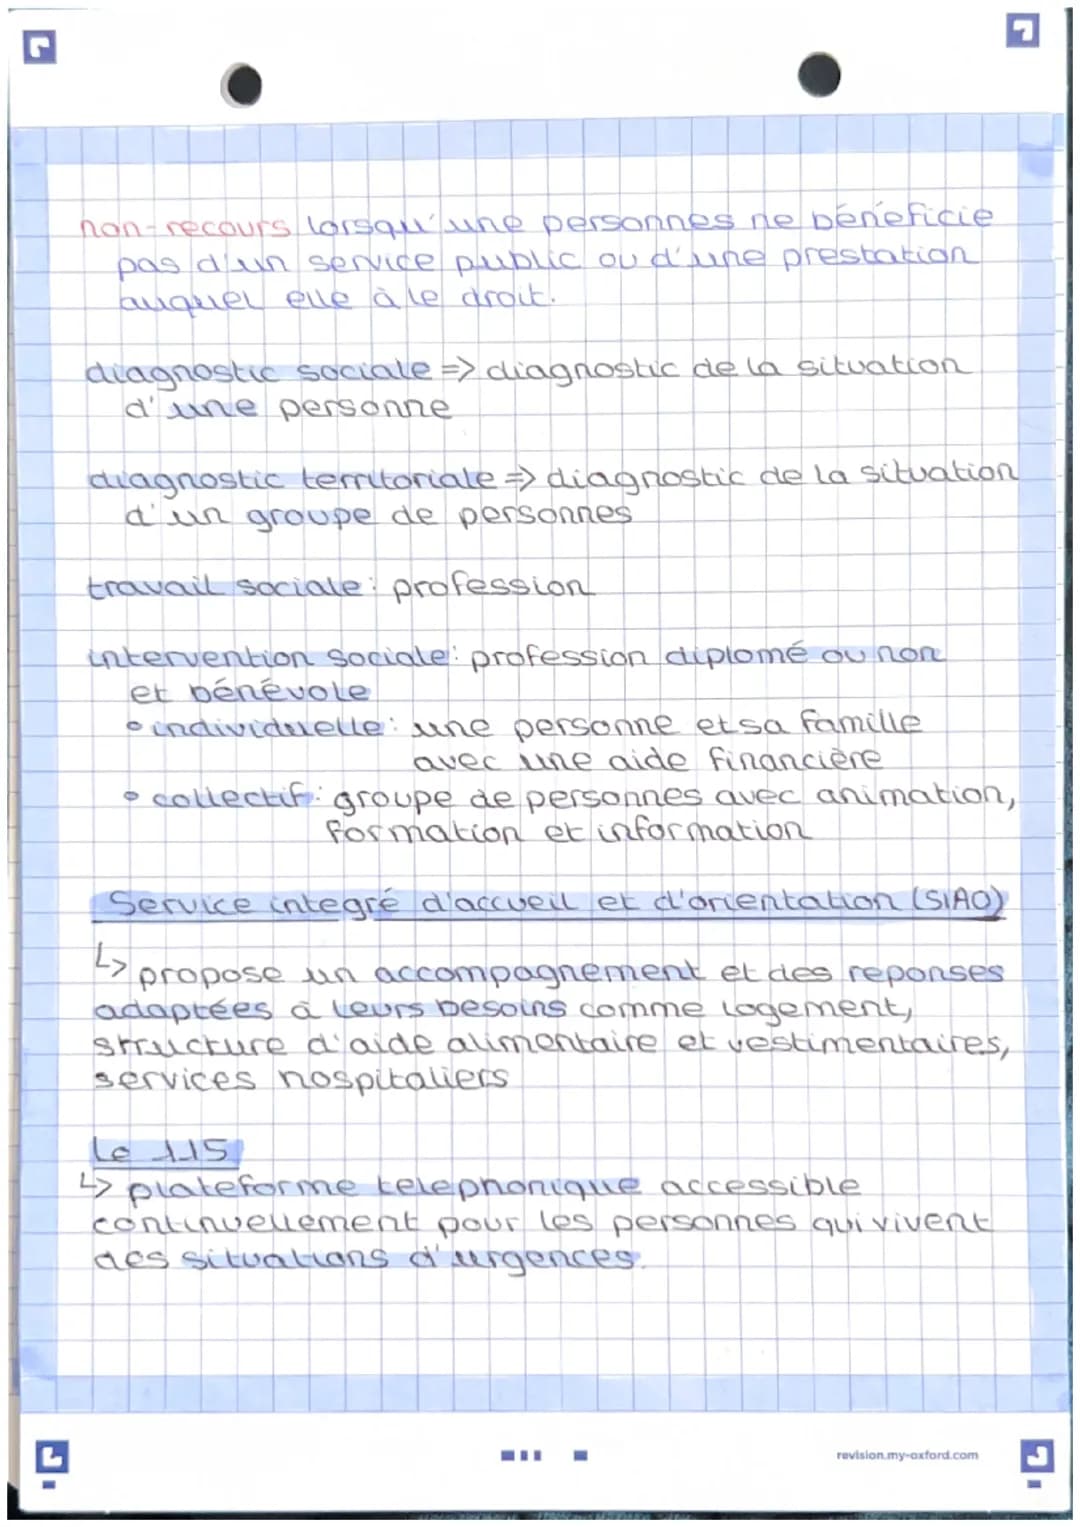 non-recours lorsqu'une personnes ne bénéficie
pas d'un service public ou d'une prestation
auquel elle à le droit.
diagnostic sociale => diagnostic de la situation
d'une personne
diagnostic territoriale => diagnostic de la situation
d'un groupe de personnes
travail sociale : profession
intervention sociale : profession diplomé ou non
et bénévole
• individuelle : une personne et sa famille
avec une aide financière
• collectif : groupe de personnes avec animation,
formation et information
Service integré d'accueil et d'orientation (SIAO)
↳ propose un accompagnement et des reponses
adaptées à leurs besoins comme logement,
structure d'aide alimentaire et vestimentaires,
services hospitaliers
Le 115
↳ plateforme telephonique accessible
continuellement pour les personnes qui vivent
des situations d'urgences.
revision.my-oxford.com